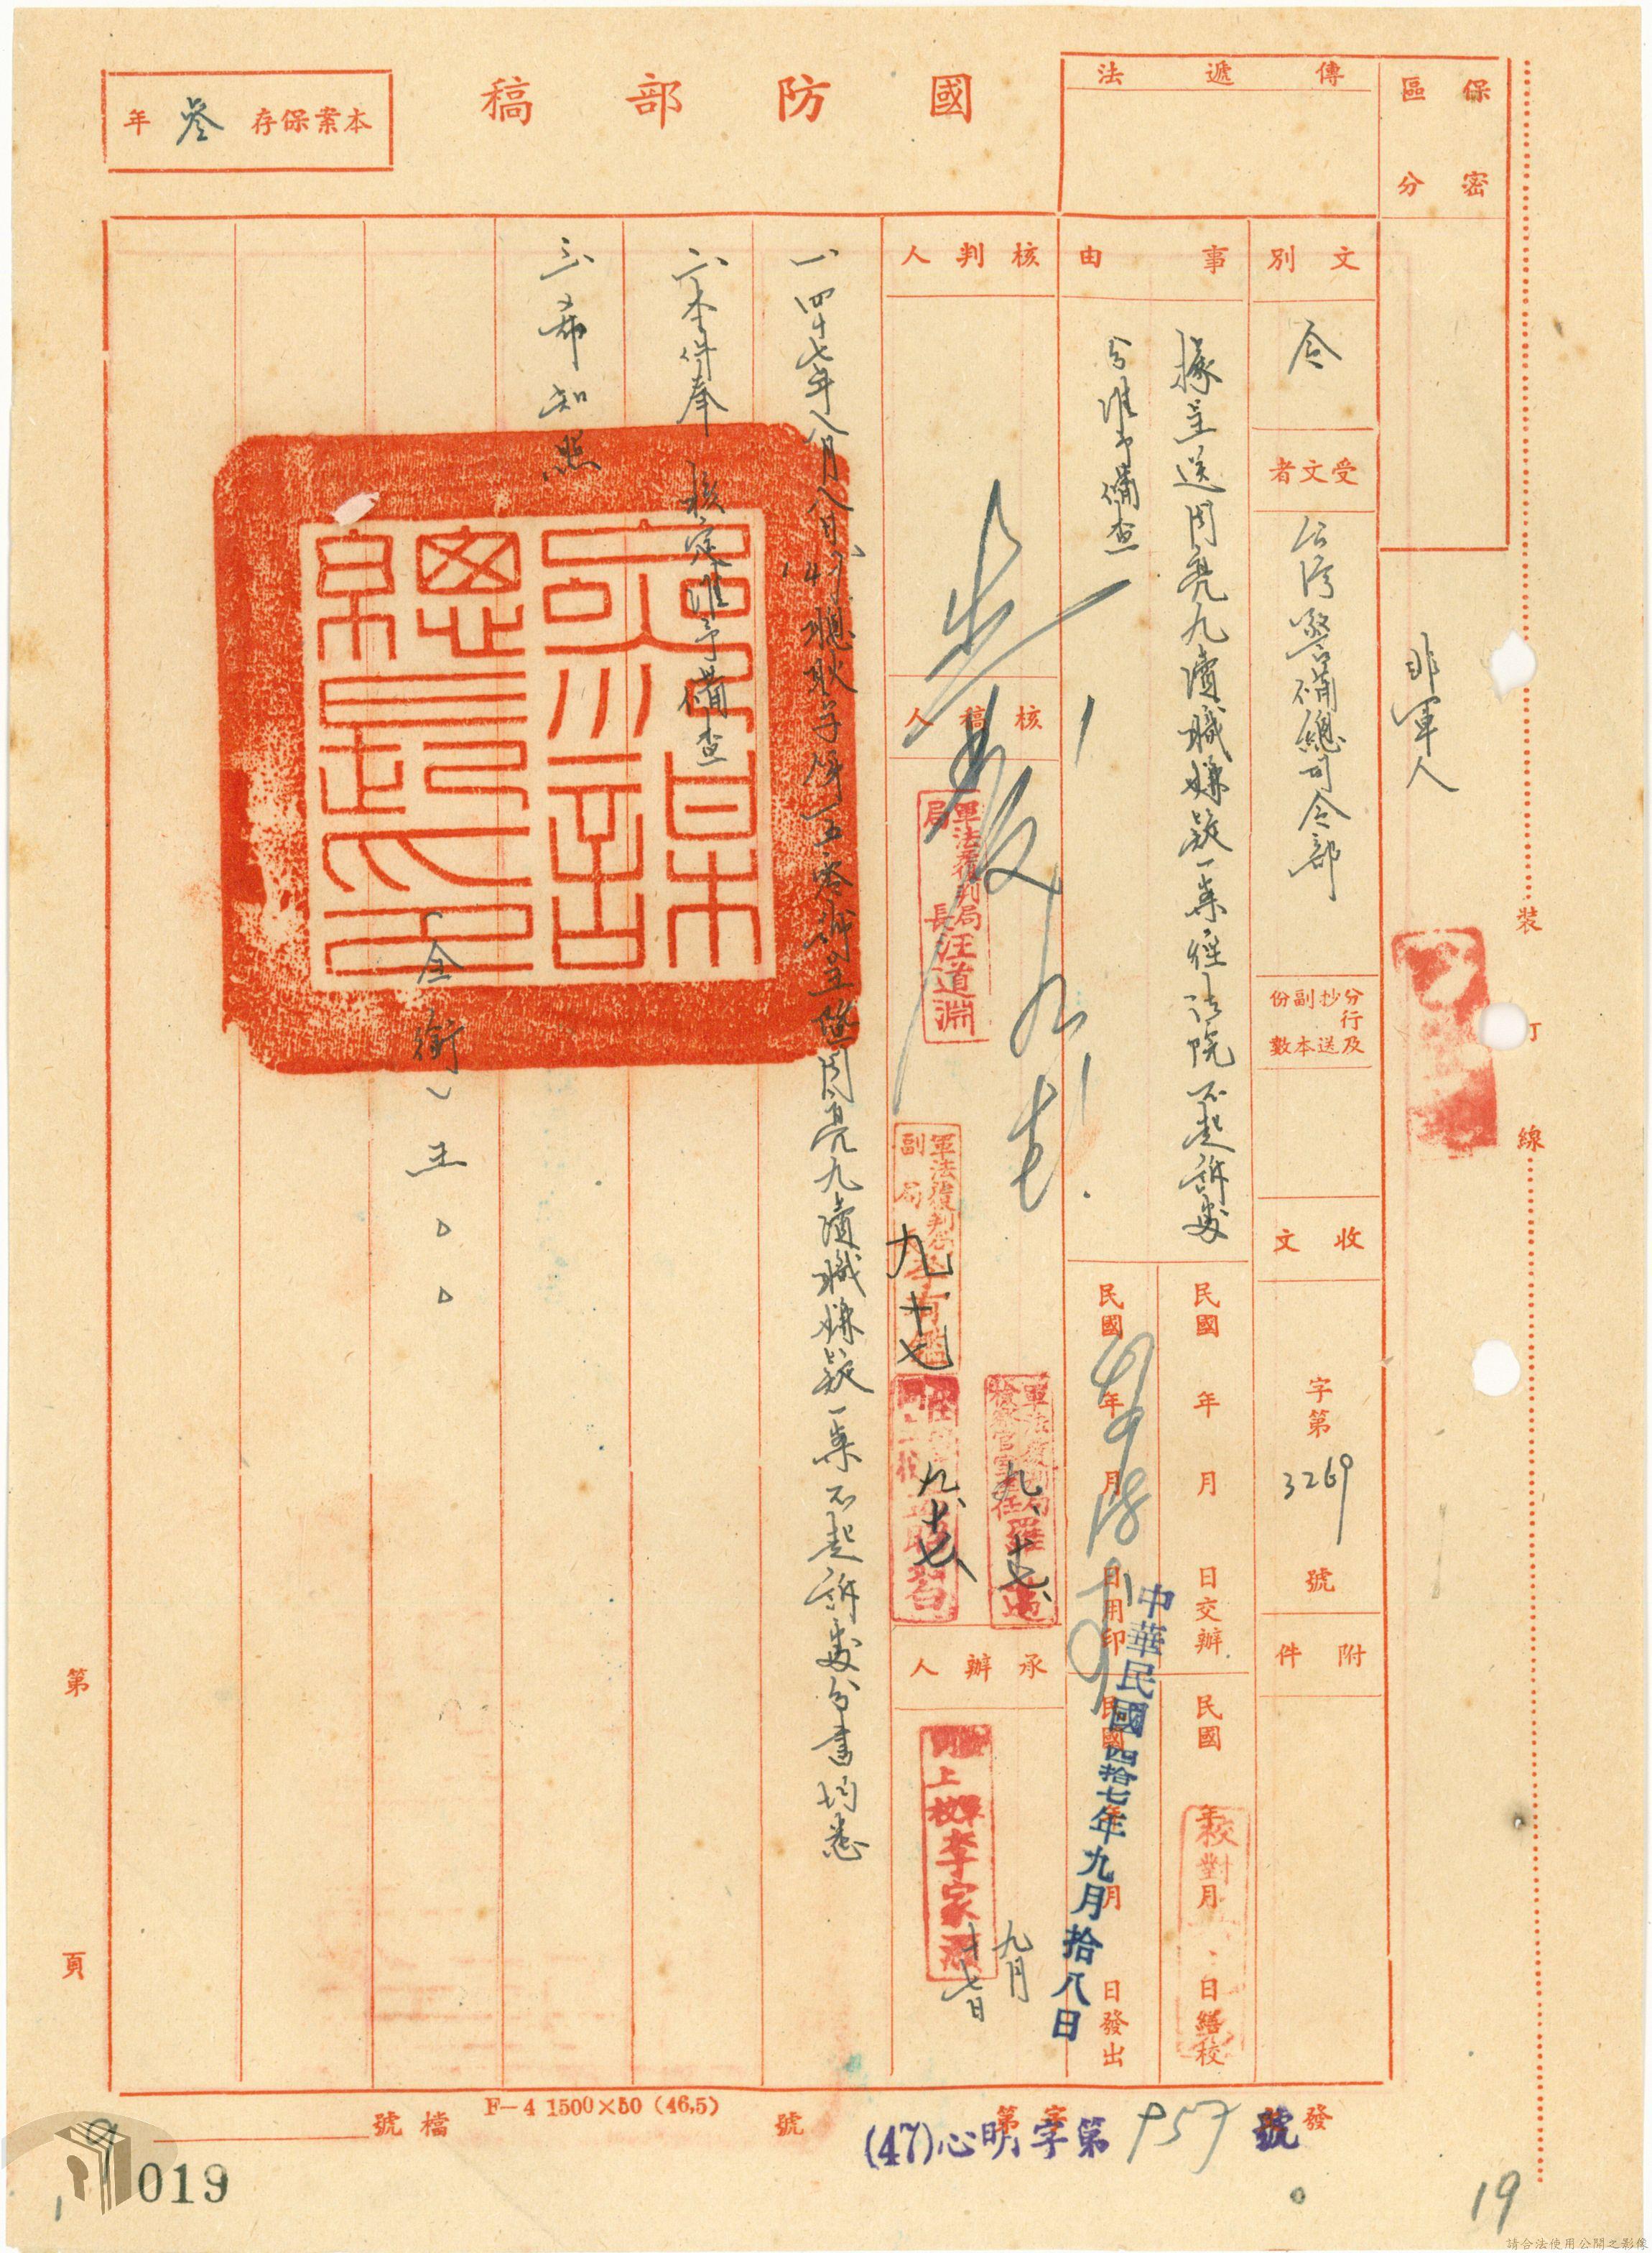 國防部稿
本案保存叄年
保密區分
傳遞法
非軍人
文別
令
受文者
台灣警備總司令部
分行及抄送副本份數
收文
字第3269號
附件
事由
據呈送周亮九瀆職嫌疑一案經法院不起訴處
分准予備查
民國 年 月 日交辦
民國 年 月 日繕校
校對
民國47年9月18日用印
民國 年 月 日發出
中華民國四拾七年九月拾八日
核判人
核稿人
軍法覆判局局長汪道淵
軍法覆判局副局長
九 十七
軍法覆判局檢察官室主任羅
九、十七、
九、十七、
承辦人
上校 李家
九月
十七日
一、四十七年八月八日
字第一五零號呈暨周亮九瀆職嫌疑一案不起訴處分書均悉
二、本件奉 核定准予備查
三、希知照
(全銜)王○○
參謀總長印
裝
訂
線
第
頁
檔號
F—4 1500×50 (46,5)
發
字
第
號
(47)心明字第957號
019
19
請合法使用公開之影像